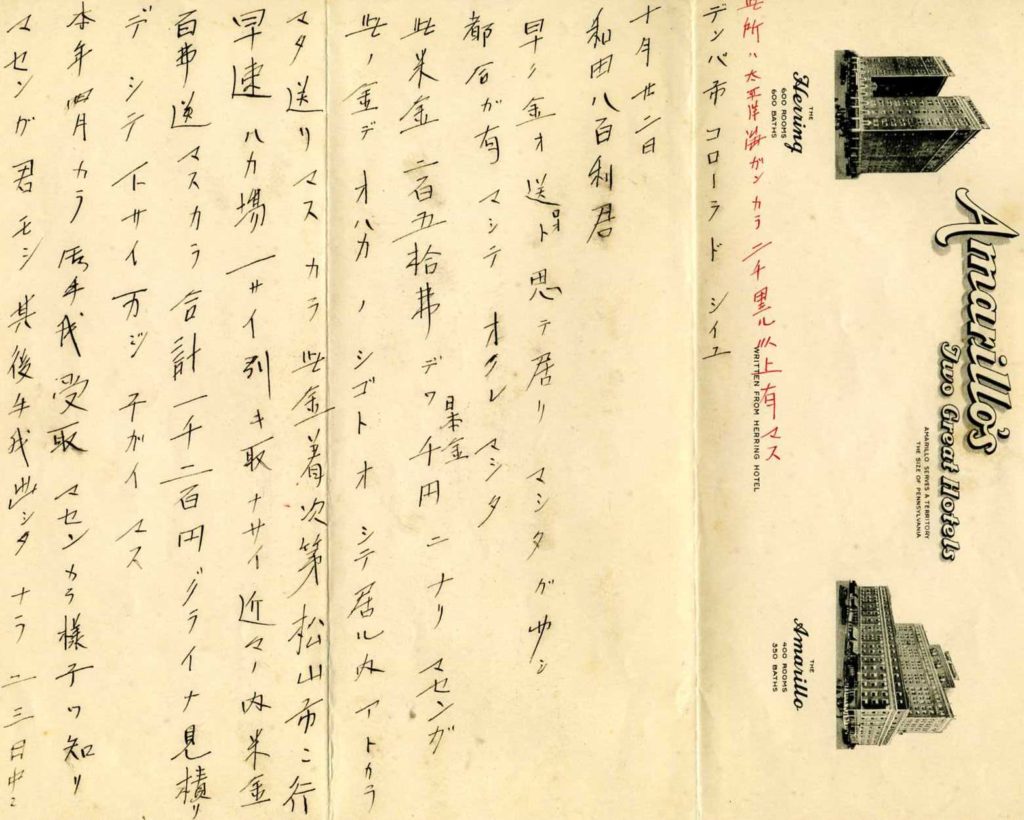 Amarillo's
Two Great Hotels
AMARILLO SERVES A TERRITORY
THE SIZE OF PENNSYLVANIA
THE
Herring
600 ROOMS
600 BATHS
THE
Amarillo
400 ROOMS
350 BATHS
WRITTEN FROM HERRING HOTEL
此所ハ太平洋海ガンカラ二千里ル以上有マス
デンバ市コローラドシイユ
十月廿二日
和田八百利君
早ク金オ送ロオト思テ居リマシタガ少シ
都合が有マシテオクレマシタ
此米金二百五拾弗デワ日本金千円ニナリマセンガ
此ノ金デオハカノシゴトオシテ居ル内アトカラ
マタ送リマスカラ此金着次第松山市ニ行
早速ハカ場一サイ引キ取ナサイ近々ノ内米金
百弗送マスカラ合計一千二百円グライナ見積リ
デシテ下サイ万ジ子ガイマス
本年四月カラ手我受取マセンカラ様子ワ知リ
マセンガ君モシ其後手我出シタナラ二三日中ニ